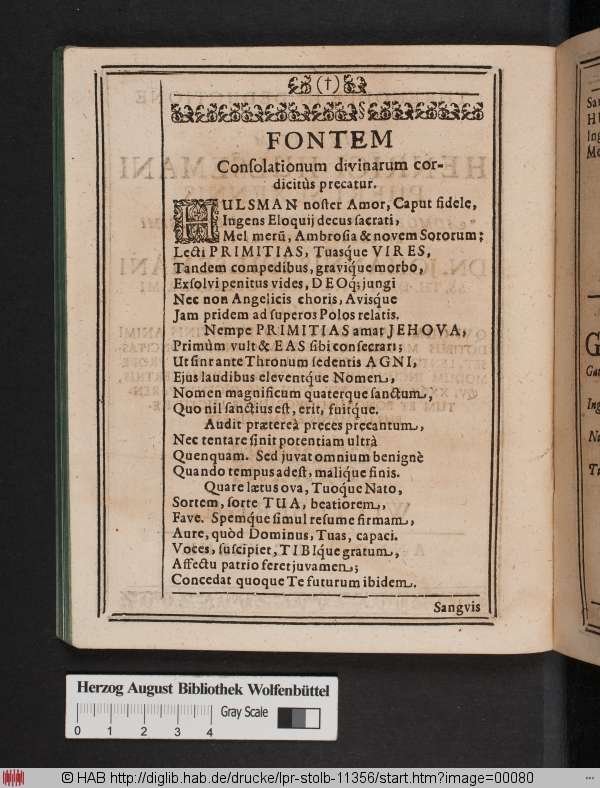 (†)
FONTEM
Conſolationum divinarum cor-
dicitùs precatur.
HULSMAN noſter Amor, Caput fidele,
Ingens Eloquij decus ſacrati,
Mel merū, Ambroſia & novem Sororum;
Lecti PRIMITIAS, Tuasque VIRES,
Tandem compedibus, graviq́ue morbo,
Exſolvi penitus vides, DEOq́; jungi
Nec non Angelicis choris, Aviſque
Jam pridem ad ſuperos Polos relatis.
Nempe PRIMITIAS amat JEHOVA,
Primùm vult & EAS ſibi conſecrari;
Ut ſint ante Thronum ſedentis AGNI,
Ejus laudibus eleventq́ue Nomen,
Nomen magnificum quaterque ſanctum,
Quo nil ſanctius eſt, erit, fuitq́ue.
Audit prætereà preces precantum,
Nec tentare ſinit potentiam ultrà
Quenquam. Sed juvat omnium benignè
Quando tempus adeſt, maliq́ue finis.
Quare lætus ova, Tuoq́ue Nato,
Sortem, ſorte TUA, beatiorem,
Fave. Spemq́ue ſimul reſume firmam,
Aure, quòd Dominus, Tuas, capaci.
Voces, ſuſcipiet, TIBIque gratum,
Affectu patrio feret juvamen;
Concedat quoque Te futurum ibidem.
Sangvis
Herzog August Bibliothek Wolfenbüttel
Gray Scale
0 1 2 3 4
© HAB http://diglib.hab.de/drucke/lpr-stolb-11356/start.htm?image=00080